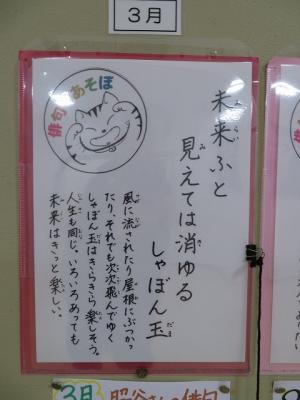 3月
俳句あそぼ
未来ふと
見えては消ゆる
しゃぼん玉
風に流されたり屋根にぶつかっ
たり、それでも次次飛んでゆく
しゃぼん玉はきらきら楽しそう。
人生も同じ。いろいろあっても
未来はきっと楽しい。
3月